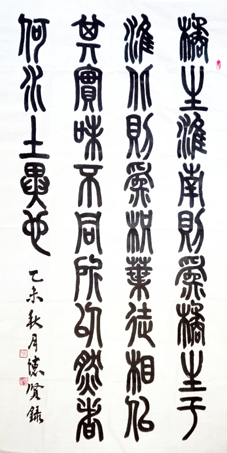 橘生淮南則爲橘生于
淮北則爲枳葉徒相似
其實味不同所以然者
何水土異也
乙未秋月懷賢錄